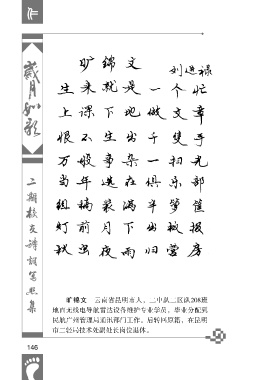 岁月如歌
二期校友诗词写照集
旷锦文
刘进禄
生来就是一个忙
上课下地做文章
恨不生出千双手
万般事杂一扫光
当年进在俱乐部
组稿装满半箩筐
灯前月下出城报
秋虫夜雨归营房
旷锦文 云南省昆明市人，二中队二区队208班
地面无线电导航雷达设备维护专业学员，毕业分配到
民航广州管理局通讯部门工作，后转回原籍，在昆明
市二轻局技术处副处长岗位退休。
146